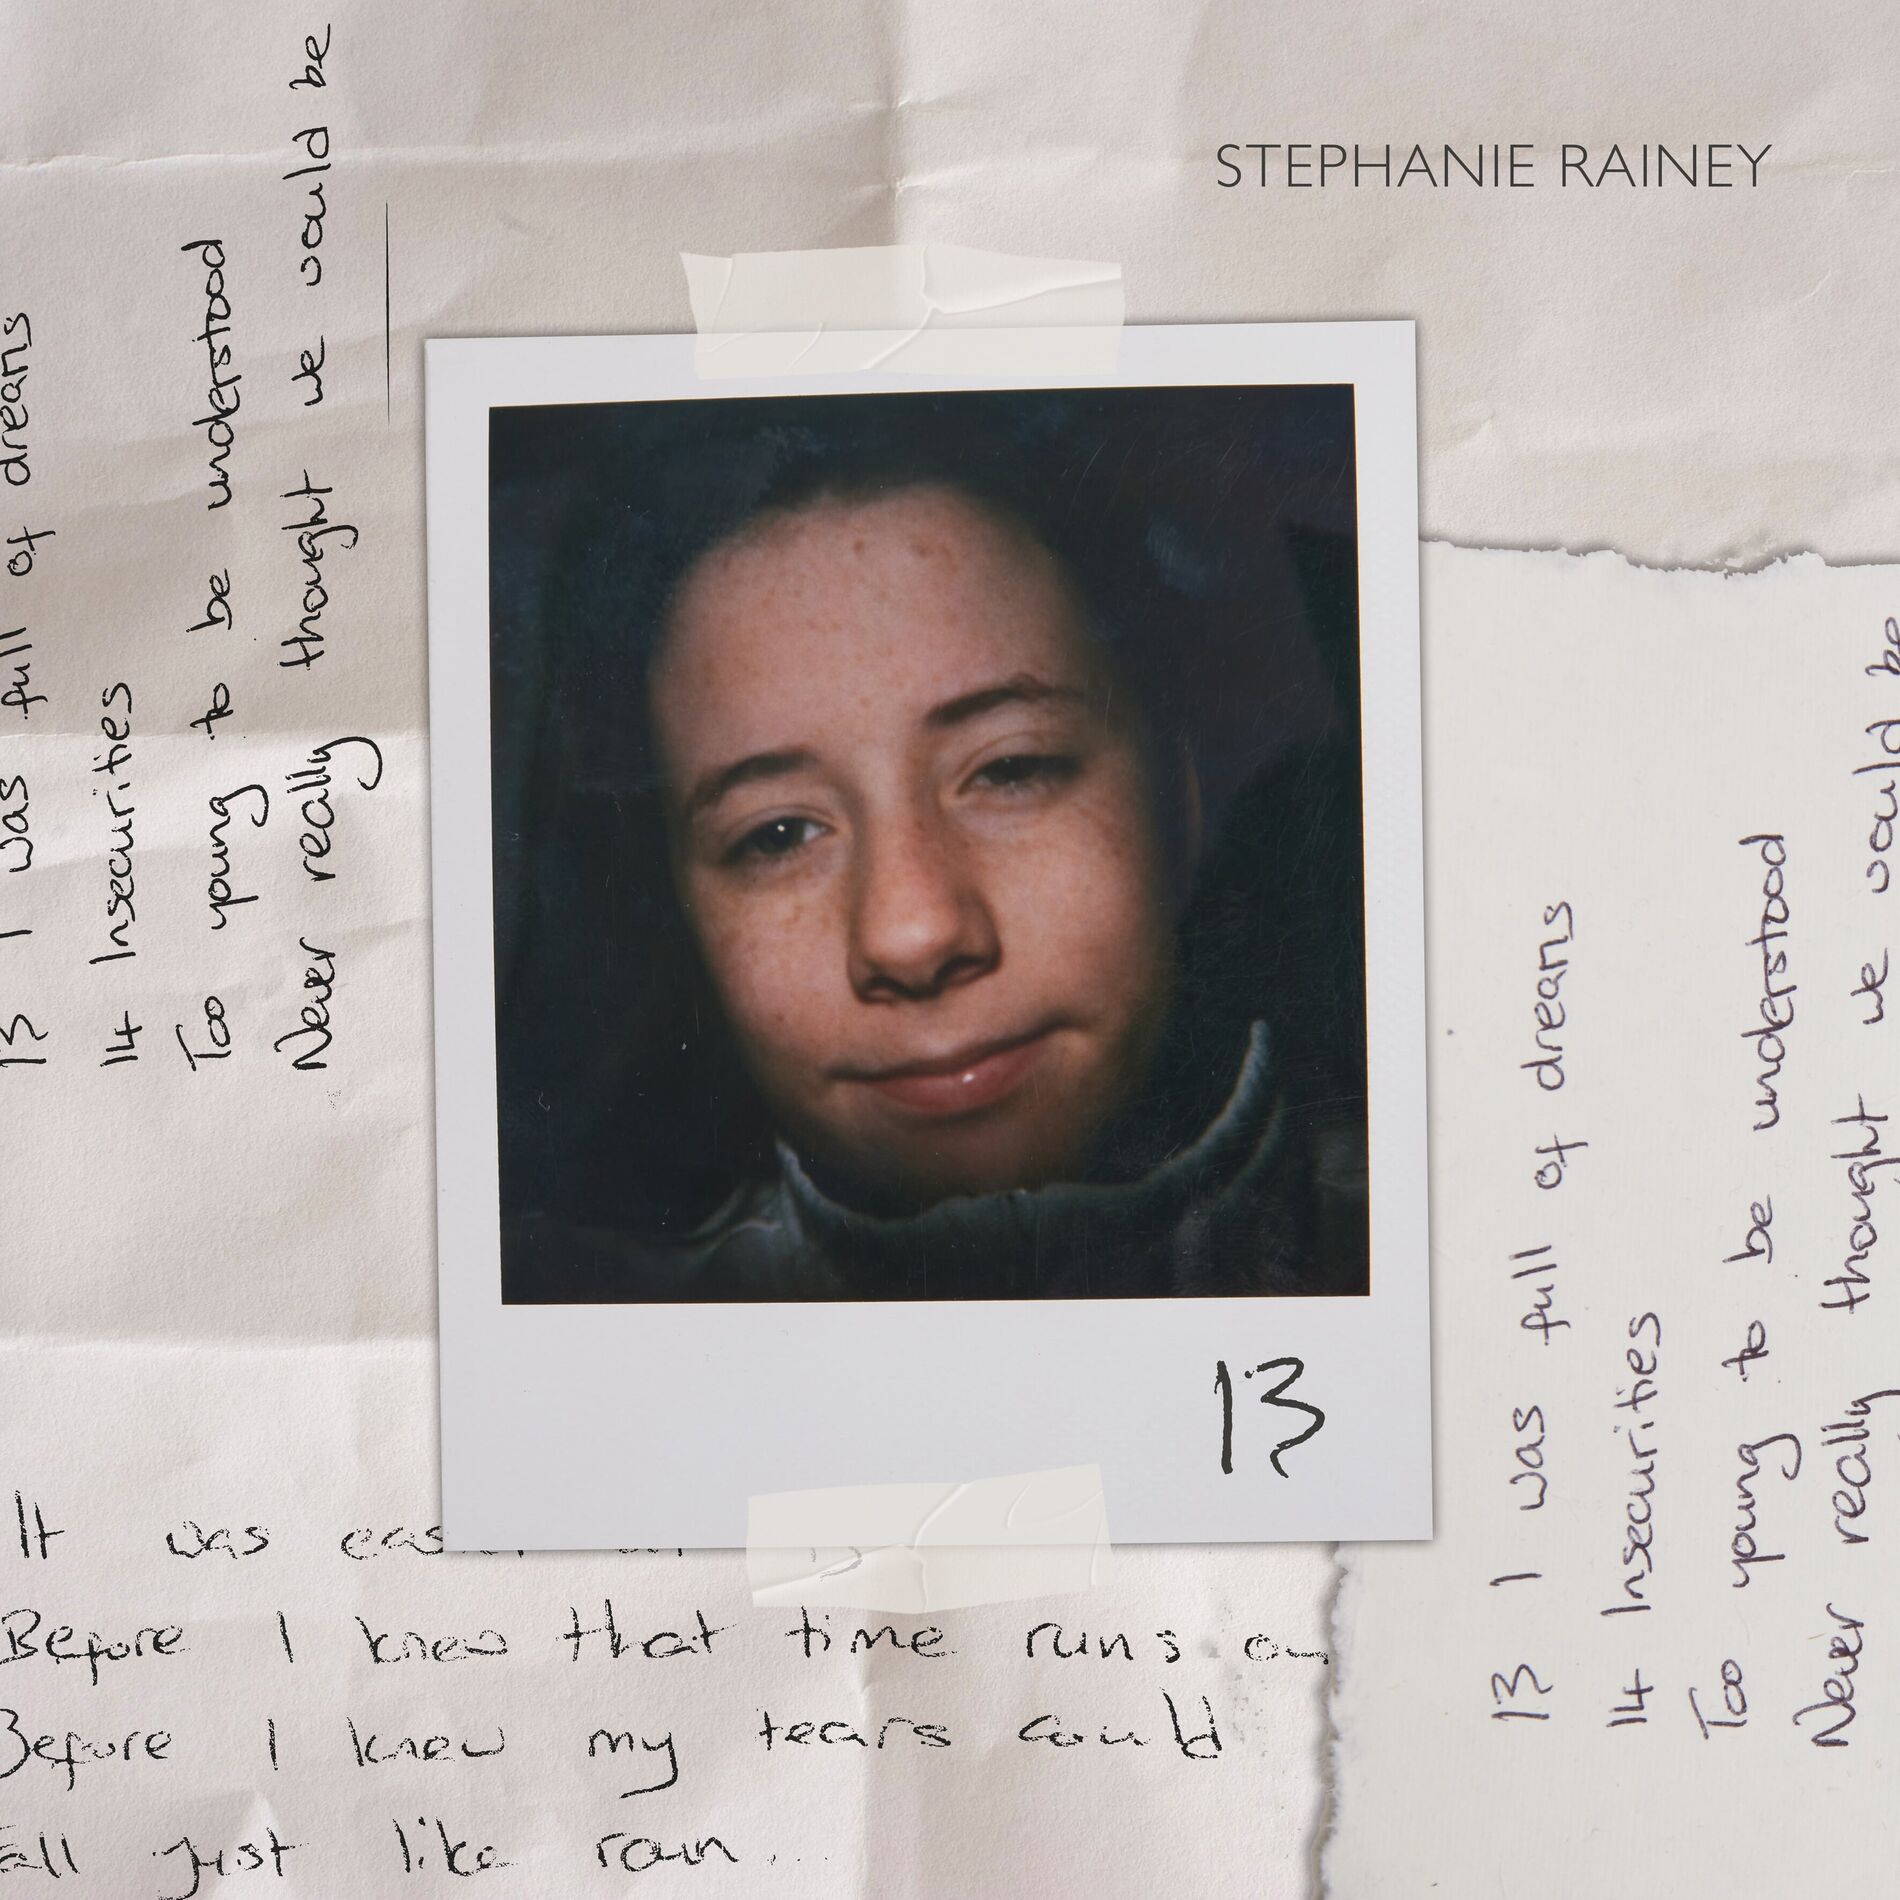 STEPHANIE RAINEY
13 I was full of dreams
14 Insecurities
Too young to be understood
Never really thought we would be
13
13 I was full of dreams
14 Insecurities
Too young to be understood
Never really thought we would be
It was
Before I knew that time runs
Before I knew my tears could
all just like rain...